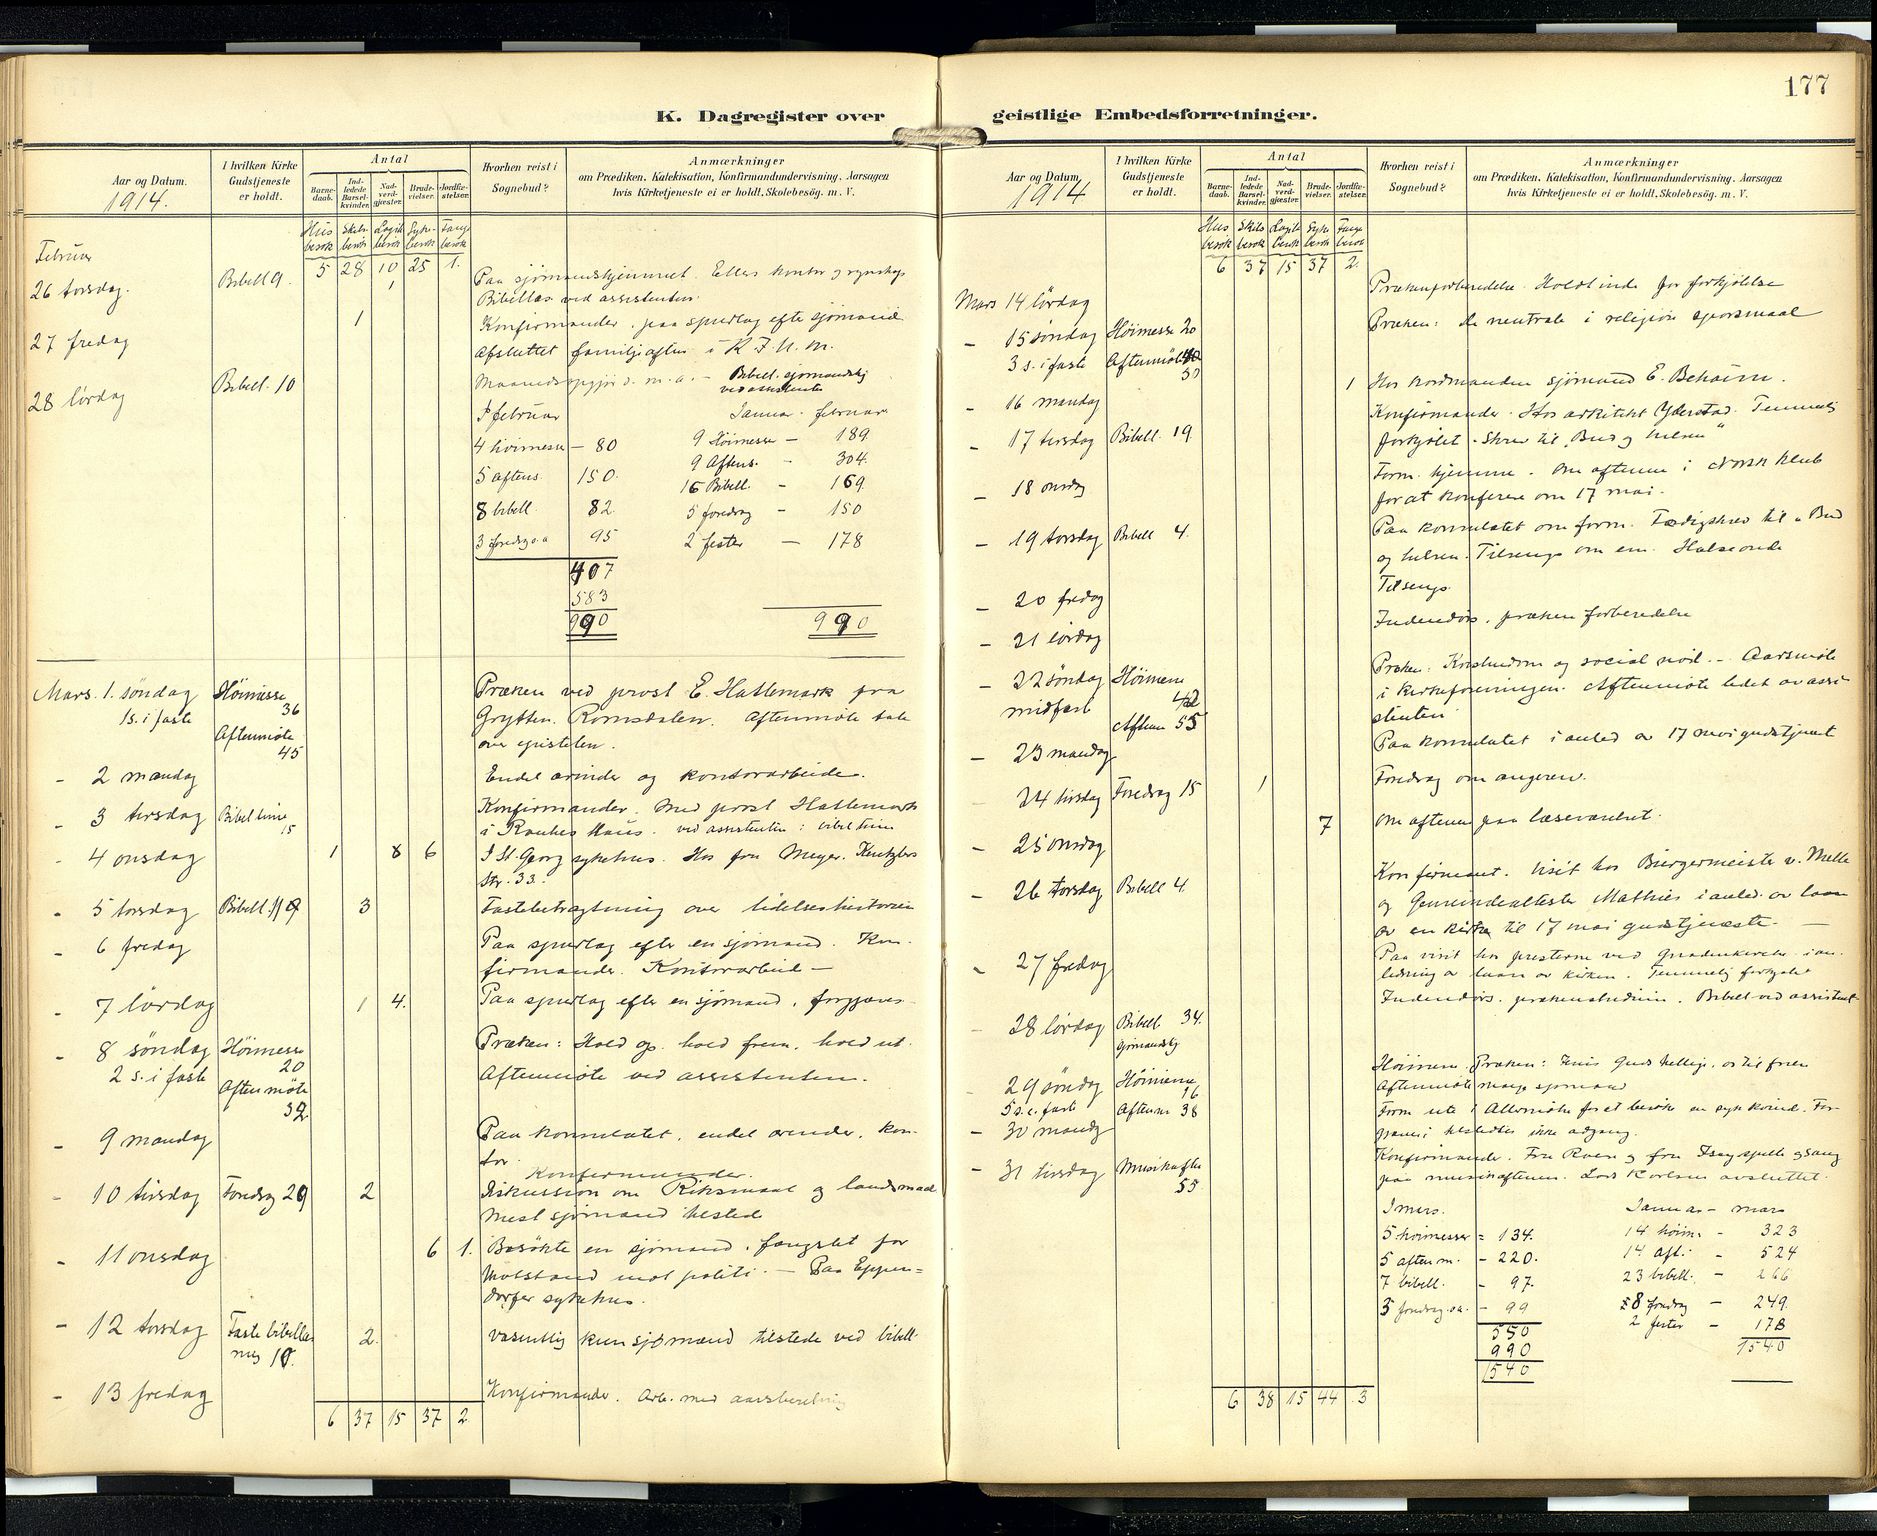 177
K. Dagregister over geistlige Embedsforretninger.
Aar og Datum.
1914.
I hvilken Kirke
Gudstjeneste
er holdt.
Antal
Barne-
daab.
Ind-
ledede
Barsel-
kvinder.
Nad-
verd-
gjæster.
Brude-
vielser.
Jordfæ-
stelser.
Hvorhen reist i
Sognebud?
Anmærkninger
om Prædiken, Katekisation, Konfirmandundervisning, Aarsagen
hvis Kirketjeneste ei er holdt, Skolebesøg. m. V.
Hus besøk Skibs besøk Logih besøk Syke- besøk Fange besøk
Februar 5 28 10 25 1.
26 torsdag. Bibell 9. 1 Paa sjømandshjemmet. Ellers kontor og
Bibellæs ved assistenten.
27 fredag 1 Konfirmander. paa spurlag efter sjømænd.
Afsluttet familjeaften i K.F.U.M.
28 lørdag Bibell. 10 Maanedsopgjør d. m. a. – Bibell. sjømandsbj
ved assistenten
I februar Januar - februar
4 høimesser – 80 9 Høimesse – 189.
5 aftens. 150. 9 Aftens. – 304.
8 bibell. 82. 16 Bibell. – 169.
3 foredrag o.a 95 5 foredrag – 150
407 2 fester – 178
583
990 990
Mars. 1. søndag Høimesse 36 Præken ved prost E. Hallemark fra
1 s. i faste Aftenmøte 45 Grytten. Romsdalen. Aftenmøte tale
over epistelen.
- 2 mandag Endel ærinder og kontorarbeide.
- 3 tirsdag Bibeltime 15 Konfirmander. Med prost Hallemark
i Rauhes Haus. ved assistenten: bibeltime
- 4 onsdag 1 8 6 I St. Georg sykehus. Hos fru Meyer.
Str. 33.
- 5 torsdag Bibell. 3 Fastebetragtning over lidelseshistorien
- 6 fredag Paa spurlag efter en sjømand. Kon-
firmander. Kontorarbeid –
- 7 lørdag 1 4. Paa spurlag efter en sjømand, forgjæves
- 8 søndag Høimesse 20 Præken: Hold op. hold frem. hold ut.
2 s. i faste Aftenmøte 32 Aftenmøte ved assistenten.
- 9 mandag Paa konsulatet, endel ærinder, kon-
tor.
Konfirmander.
- 10 tirsdag Foredrag 29 2 Diskussion om Riksmaal og landsmaal
Mest sjømænd tilstede
- 11 onsdag 6 1. Besøkte en sjømand, fængslet for
Motstand mot politi. – Paa Eppen-
dorfer sykehus.
- 12 torsdag Faste bibellæs
ning 10. 2. væsentlig kun sjømænd tilstede ved bibell.
- 13 fredag Konfirmander. Arb. med aarsberetning
6 37 15 37 2
Aar og Datum.
1914
I hvilken Kirke
Gudstjeneste
er holdt.
Antal
Barne-
daab.
Ind-
ledede
Barsel-
kvinder.
Nad-
verd-
gjæster.
Brude-
vielser.
Jordfæ-
stelser.
Hvorhen reist i
Sognebud?
Anmærkninger
om Prædiken, Katekisation, Konfirmandundervisning, Aarsagen
hvis Kirketjeneste ei er holdt, Skolebesøg. m. V.
Hus besøk Skibs besøk Logih besøk Syke besøk Fange besøk
6 37 15 37 2.
Mars 14 lørdag Prækenforberedelse. Holdt inde for forkjølelse
- 15 søndag Høimesse 20 Præken: de neutrale i religiøse spørsmaal
3 s. i faste Aftenmøte 30
- 16 mandag 1 Hos nordmanden sjømand E. Behøim.
- 17 tirsdag Bibell. 19. Konfirmander. Hos arkitekt Yderstad. Temmelig
forkjølet. Skrev til "Bud og hilsen"
- 18 onsdag Form. hjemme. Om aftenen i Norsk klub
for at konferere om 17 mai.
- 19 torsdag Bibell 4. Paa konsulatet om form. Færdigskrev til "Bud
og hilsen. Tilsengs om em. Halsonde
- 20 fredag Tilsengs
- 21 lørdag Indendørs, præken forberedelse
- 22 søndag Høimesse 42 Præken: Kristendom og social nød. – Aarsmøte
midfaste Aftenm 55 i kirkeforeningen. Aftenmøte ledet av assi-
stenten
- 23 mandag Paa konsulatet i anled. av 17 mai gudstjenest
- 24 tirsdag Foredrag 15 1 Foredrag om angeren.
- 25 onsdag 7 Om aftenen paa læseværelset.
- 26 torsdag Bibell 4. Konfirmant. Visit hos Bürgermeister v. Melle
og Gemeindeältester Mathies i anled. av laan
av en kirke til 17 mai gudstjeneste. –
- 27 fredag Paa visit hos presterne ved Gnadenkirche i an-
ledning av laan av kirken. Temmelig forkjølet
- 28 lørdag Bibell 34. Indendørs. prækenstudium. Bibell ved assistent
sjømandsbj
- 29 søndag Høimesse 16 Høimesse. Præken:
5 s. i faste Aftenm 38 Aftenmøte mange sjømænd
- 30 mandg Form ute i Altona for at besøke en syk kvind. For-
gjæves: tilstedtes ikke adgang.
- 31 tirsdag Musikaften 55. Konfirmander. Fru Roer og frøk spille og sang
paa musikaftenen. Lars Karlsen avsluttet.
I mars. Januar – mars
5 høimesser = 134. 14 høim. – 323
5 aftenm. – 220. 14 aft. – 524
7 bibell. – 97. 23 bibell. – 266
3 foredrag o.a. – 99 8 foredrag – 249.
550 2 fester – 178
990 1540
1540
6 38 15 44 3